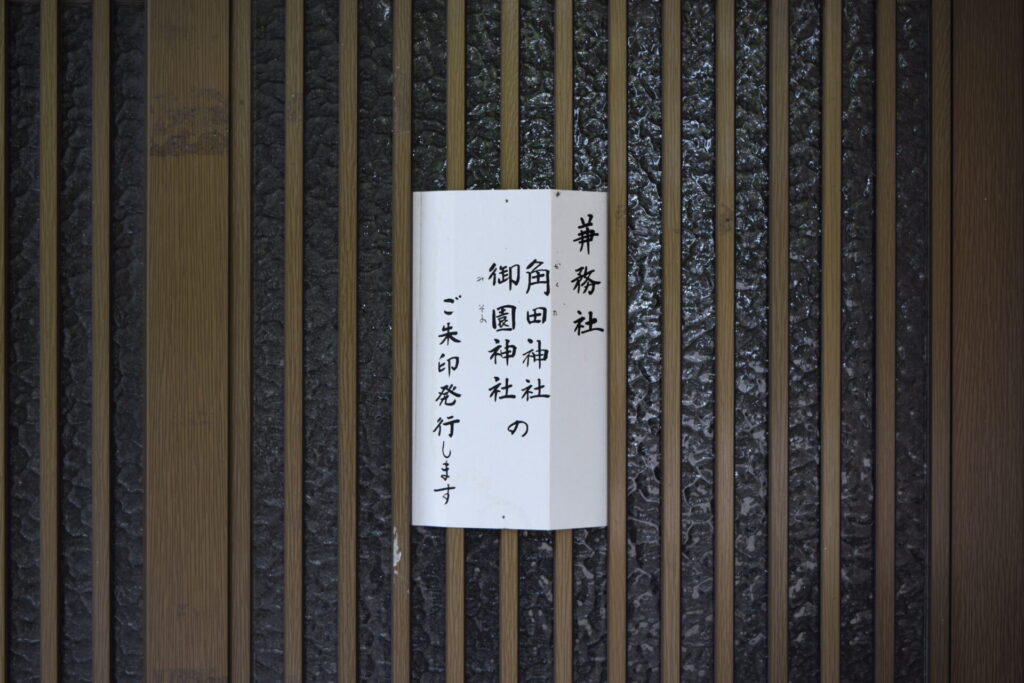 兼務社
角田神社
御園神社
の
ご朱印発行します